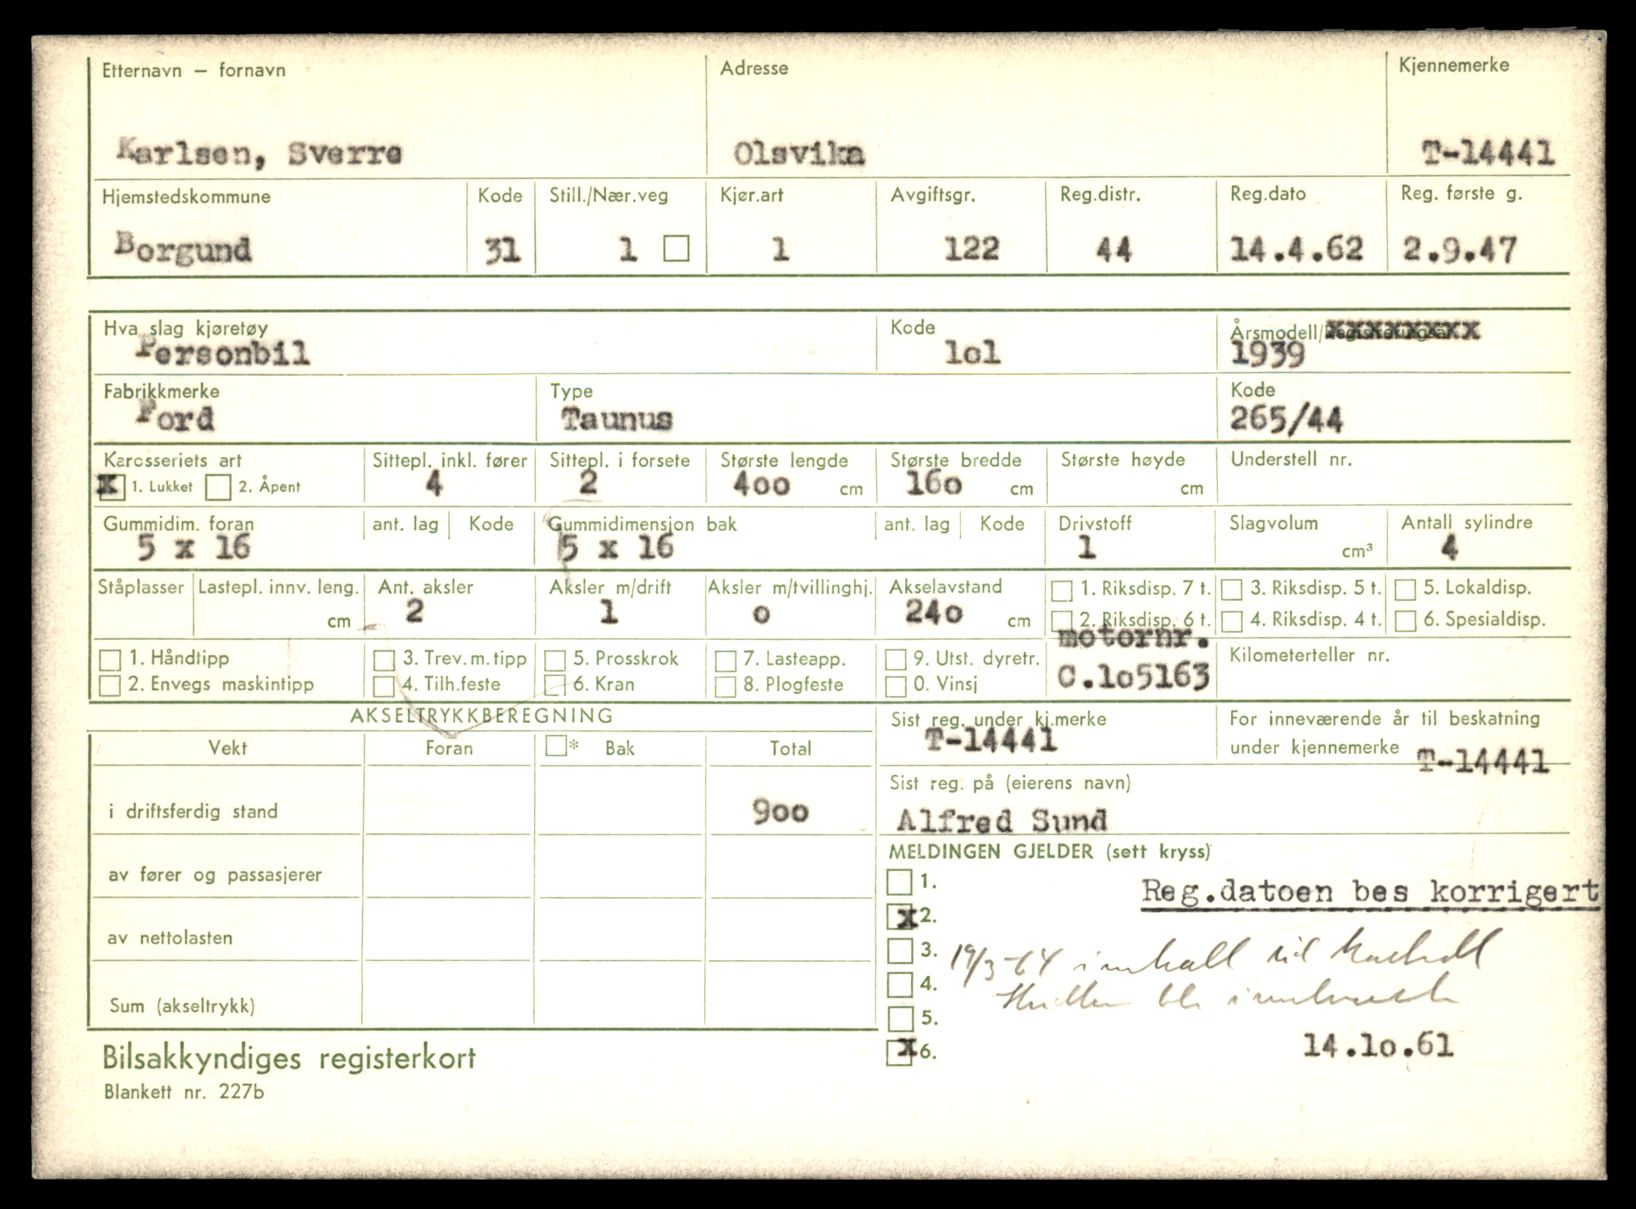 Etternavn – fornavn Adresse Kjennemerke
Karlsen, Sverre Olsvika T-14441
Hjemstedskommune Kode Still./Nær.veg Kjør.art Avgiftsgr. Reg.distr. Reg.dato Reg. første g.
Borgund 31 1 1 122 44 14.4.62 2.9.47
Hva slag kjøretøy Kode Årsmodell/Registreringsår
Personbil lol 1939
Fabrikkmerke Type Kode
Ford Taunus 265/44
Karosseriets art Sittepl. inkl. fører Sittepl. i forsete Største lengde Største bredde Største høyde Understell nr.
x 1. Lukket 2. Åpent 4 2 4oo cm 16o cm cm
Gummidim. foran ant. lag Kode Gummidimensjon bak ant. lag Kode Drivstoff Slagvolum Antall sylindre
5 x 16 5 x 16 1 cm³ 4
Ståplasser Lastepl. innv. leng. Ant. aksler Aksler m/drift Aksler m/tvillinghj. Akselavstand 1. Riksdisp. 7 t. 3. Riksdisp. 5 t. 5. Lokaldisp.
cm 2 1 o 24o cm 2. Riksdisp. 6 t. 4. Riksdisp. 4 t. 6. Spesialdisp.
motornr.
1. Håndtipp 3. Trev. m. tipp 5. Prosskrok 7. Lasteapp. 9. Utst. dyretr. Kilometerteller nr.
2. Envegs maskintipp 4. Tilh.feste 6. Kran 8. Plogfeste 0. Vinsj C.lo5163
AKSELTRYKKBEREGNING Sist reg. under kj.merke For inneværende år til beskatning
T-14441 under kjennemerke T-14441
Vekt Foran * Bak Total
Sist reg. på (eierens navn)
i driftsferdig stand 9oo Alfred Sund
MELDINGEN GJELDER (sett kryss)
av fører og passasjerer 1. Reg.datoen bes korrigert
x 2.
av nettolasten 3. 19/3-64 innkalt til
4.
Sum (akseltrykk) 5.
x 6. 14.lo.61
Bilsakkyndiges registerkort
Blankett nr. 227b